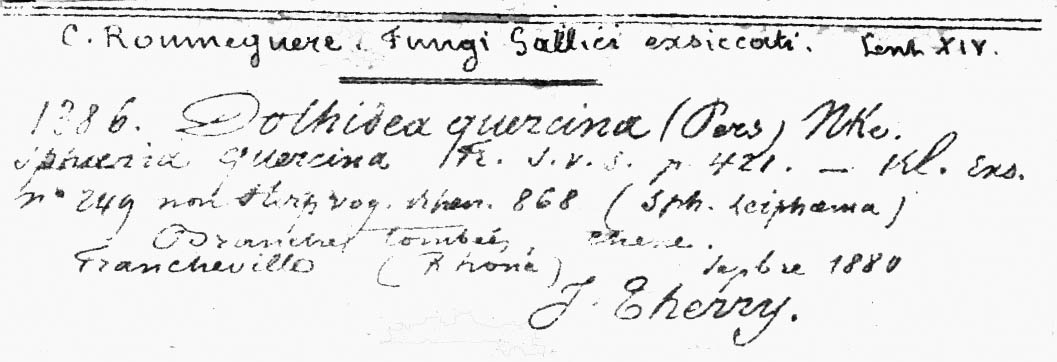 C. Roumeguere. Fungi Gallici exsiccati. Cent. XIV.
1386. Dothidea quercina (Pers) Nke.
Sphaeria quercina Fr. S.v.S. p. 421. — Kl. Exs.
n° 249 non Stirp. vog. rhen. 868 (Sph. leiphaema)
Branches tombées, chene.
Francheville (Rhône) Sepbre 1880
J. Therry.